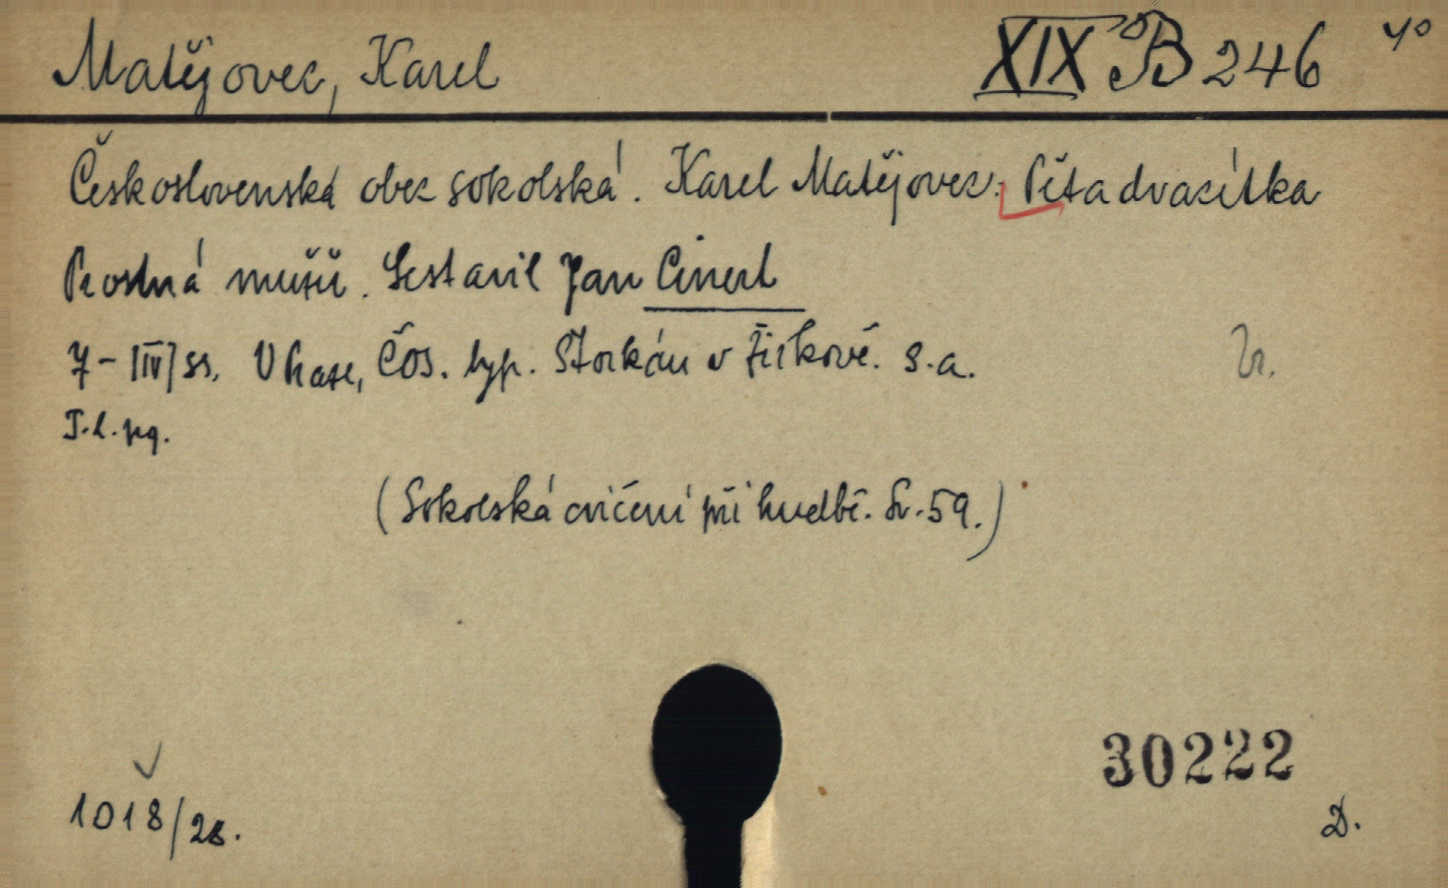 Matějovec, Karel XIX B 246 4°
Československá obec sokolská. Karel Matějovec. Pětadvacítka
Prostná mužů. Sestavil Jan Cinert
7-[IV] ss. V Praze, ČOS. typ. Storkán v Žižkově. s.a.
T.l.pg.
(Sokolská cvičení při hudbě. Sv. 59.)
30222
1018/28.
D.